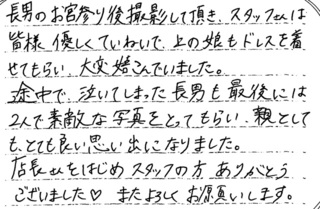 長男のお宮参り後撮影して頂き、スタッフさんは
皆様、優しくていねいで、上の娘もドレスを着
せてもらい、大変喜こんでいました。
途中で、泣いてしまった長男も最後には
2人で素敵な写真をとってもらい、親として
も、とても良い思い出になりました。
店長さんをはじめスタッフの方、ありがとう
ございました♡ またよろしくお願いします。